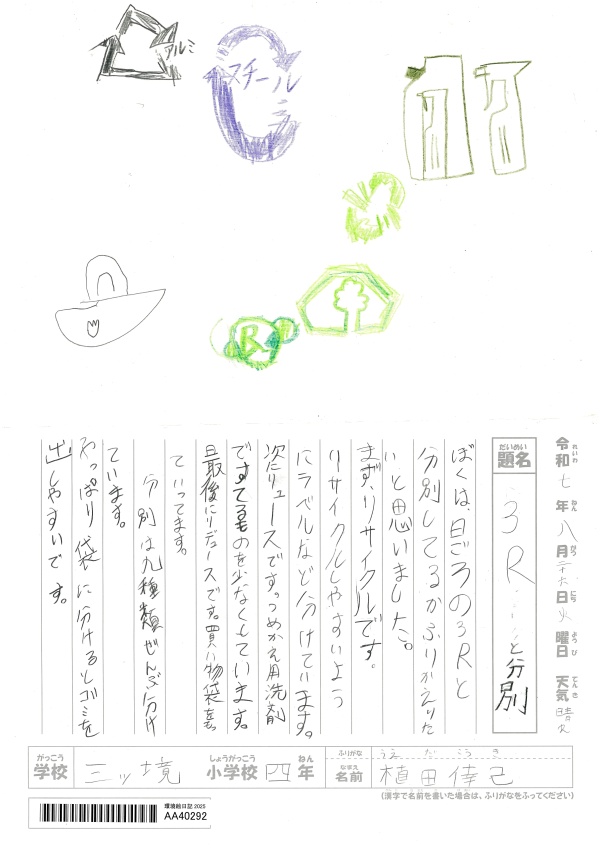 アルミ
スチール
R
令和七年八月二十六日火曜日 天気晴れ
れいわ ねん がつ にち よう び てんき
だいめい
題名
3Rと分別
ぼくは、日ごろの3Rと
分別してるかふりかえりた
いと思いました。
まず、リサイクルです。
リサイクルしやすいよう
にラベルなど分けています。
次にリュースです。つめかえ用洗剤
ですてるものを少なくしています。
最後にリデュースです。買い物袋を
ていってます。
分別は九種類ぜんぶ分け
ています。
やっぱり袋に分けるとゴミを
出しやすいです。
がっこう
学校
三ッ境
しょうがっこう ねん
小学校四年
ふりがな
うえ だ こう き
なまえ
名前
植田倖己
(漢字で名前を書いた場合は、ふりがなをふってください)
環境絵日記2025
AA40292